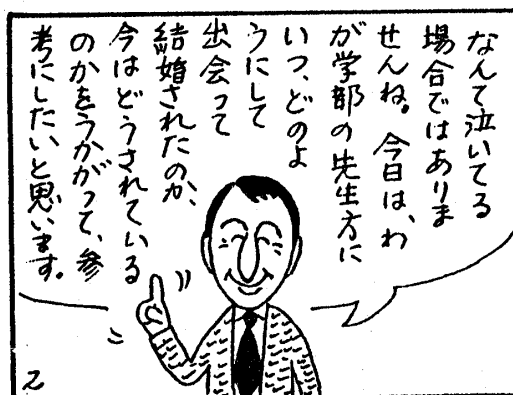 なんて泣いてる
場合ではありま
せんね。今日は、わ
が学部の先生方に
いつ、どのよ
うにして
出会って
結婚されたのか、
今はどうされている
のかをうかがって、参
考にしたいと思います。
2